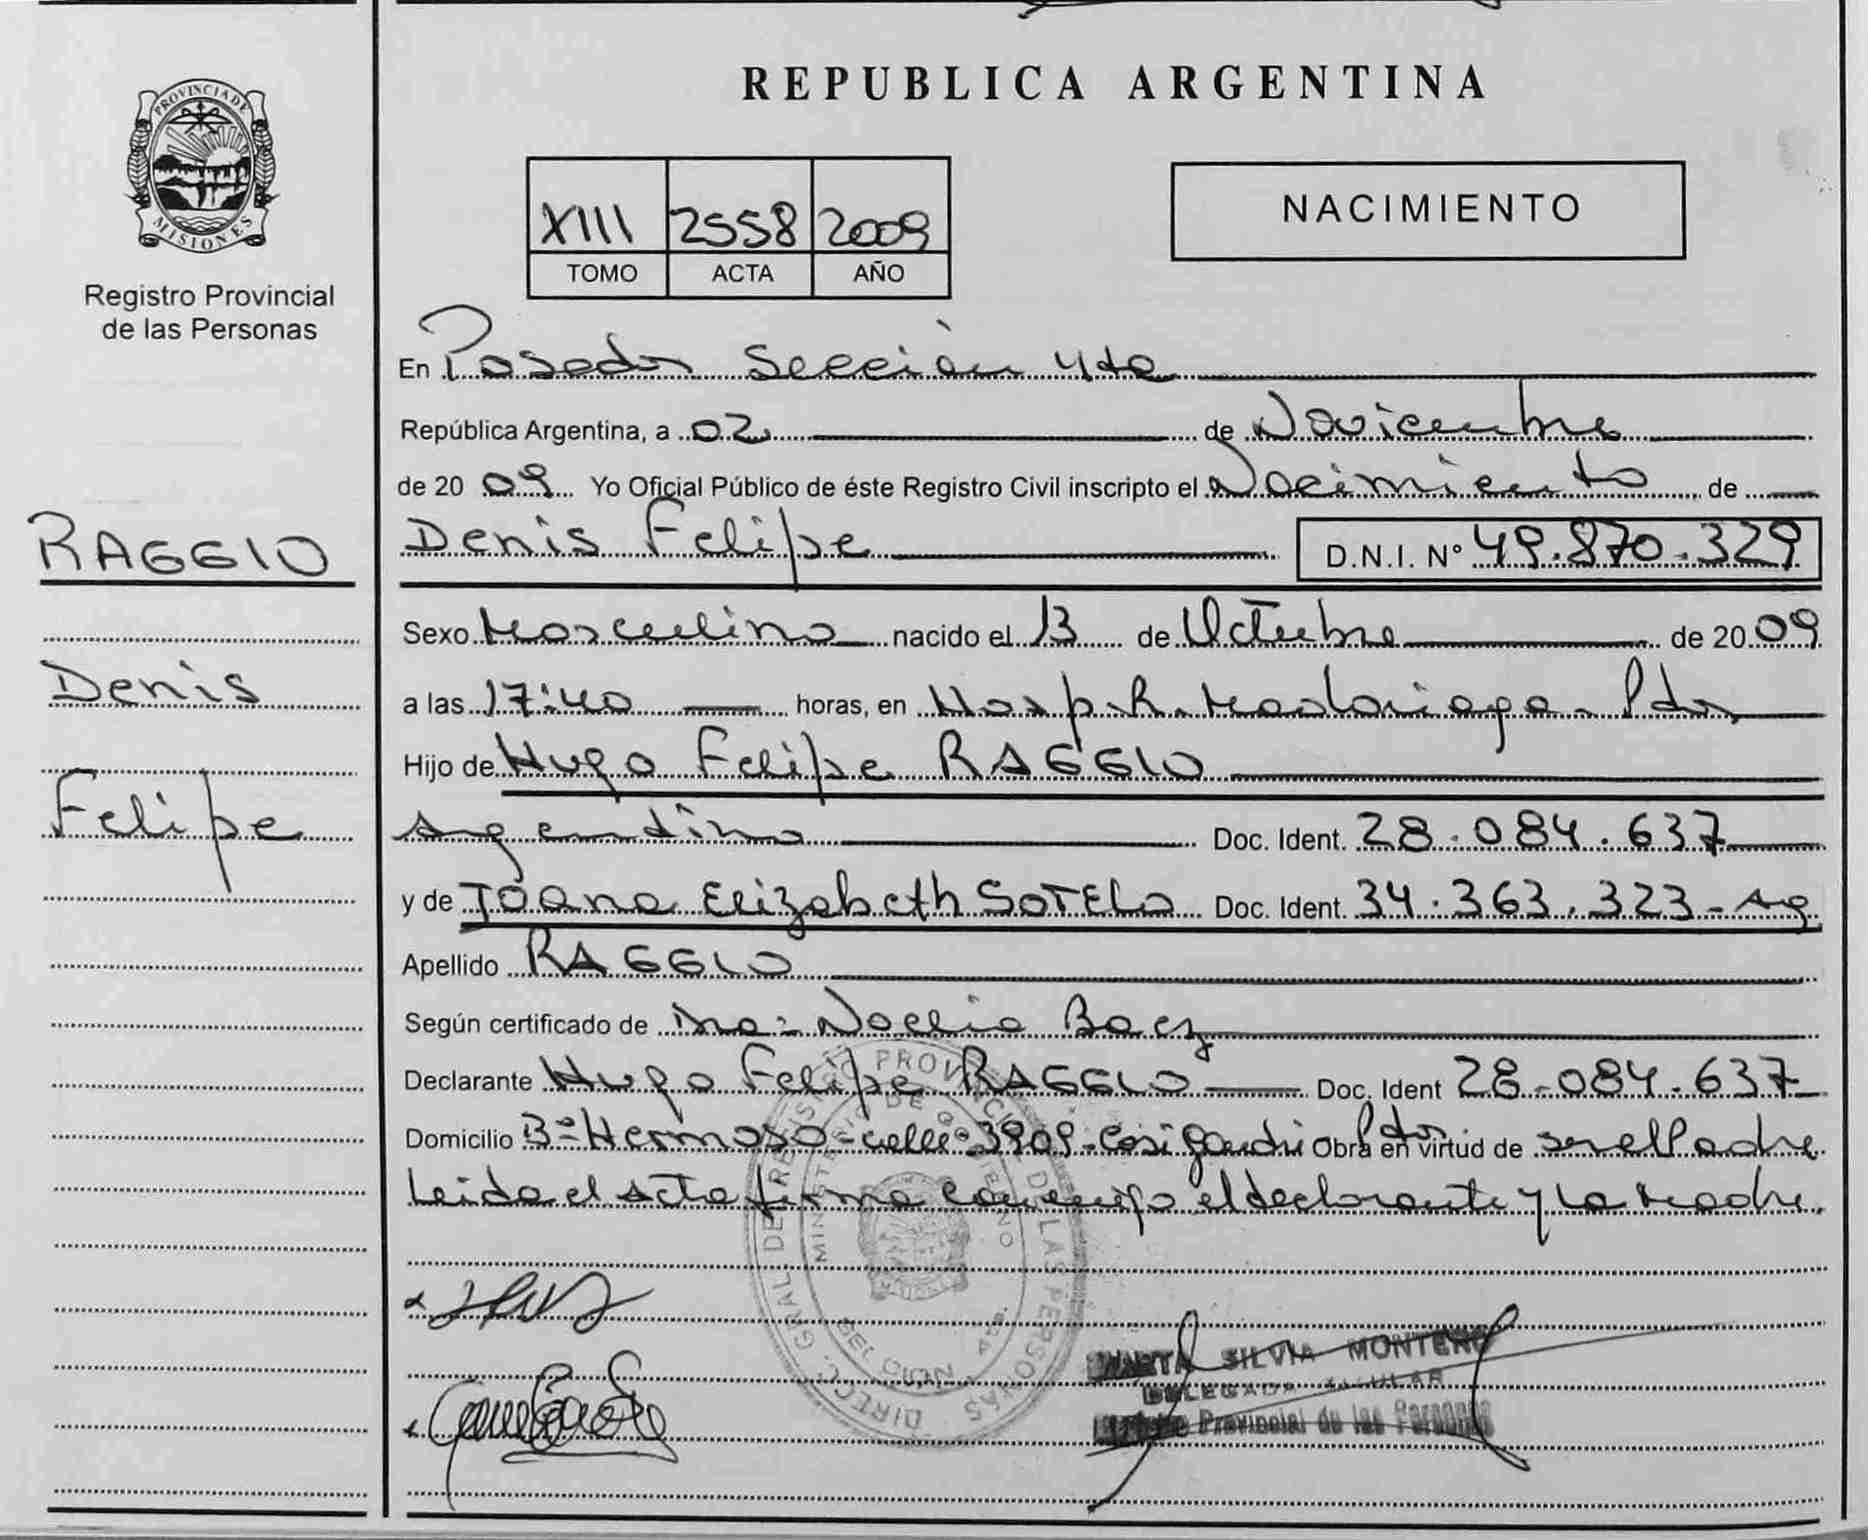 REPUBLICA ARGENTINA
PROVINCIA DE
MISIONES
Registro Provincial
de las Personas
XIII 2558 2009
TOMO ACTA AÑO
NACIMIENTO
En Posadas Sección 4ta
República Argentina, a 02 de Noviembre
de 20 09 Yo Oficial Público de éste Registro Civil inscripto el Nacimiento de
RAGGIO
Denis Felipe D.N.I. Nº 49.870.329
Sexo Masculino nacido el 13 de Octubre de 20 09
Denis
a las 17:40 horas, en Hosp. R. Madariaga - Pdas
Hijo de Hugo Felipe RAGGIO
Felipe
Argentino Doc. Ident. 28.084.637
y de Joana Elizabeth SOTELO Doc. Ident. 34.363.323 - Arg
Apellido RAGGIO
Según certificado de Noelia Baez
Declarante Hugo Felipe RAGGIO Doc. Ident 28.084.637
Domicilio Bº Hermoso - calle 3909 - Pdas Obra en virtud de ser el Padre
Leida el acta firma conmigo el declarante y la Madre.
DIRECC. GRAL DE REGISTRO PROVINCIAL DE LAS PERSONAS
MINISTERIO DE GOBIERNO
SILVIA MONTERO
DELEGADA TITULAR
Provincial de las Personas